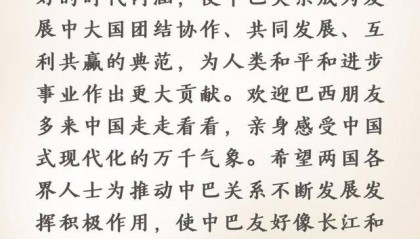 好的时代内涵，使中巴关系成为发
展中大国团结协作、共同发展、互
利共赢的典范，为人类和平和进步
事业作出更大贡献。欢迎巴西朋友
多来中国走走看看，亲身感受中国
式现代化的万千气象。希望两国各
界人士为推动中巴关系不断发展发
挥积极作用，使中巴友好像长江和